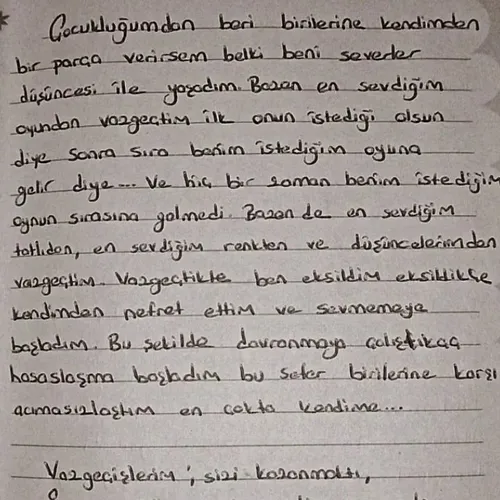 Çocukluğumdan beri birilerine kendimden
bir parça verirsem belki beni severler
düşüncesi ile yaşadım. Bazen en sevdiğim
oyundan vazgeçtim ilk onun istediği olsun
diye sonra sıra benim istediğim oyuna
gelir diye... Ve hiç bir zaman benim istediğim
oynun sırasına galmedi. Bazen de en sevdiğim
tatlıdan, en sevdiğim renkten ve düşüncelerimden
vazgeçtim. Vazgeçtikte ben eksildim eksildikçe
kendimden nefret ettim ve sevmemeye
başladım. Bu şekilde davranmaya çalıştıkaç
hasaslaşma başladım bu sefer birilerine karşı
acımasızlaştım en çokta kendime...
Vazgeçişlerim; sizi kazanmaktı,